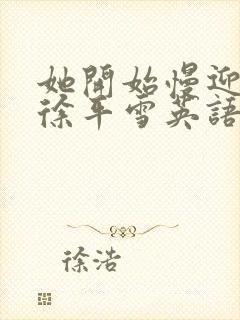 她開始慢迎
徐平雪英語
徐浩